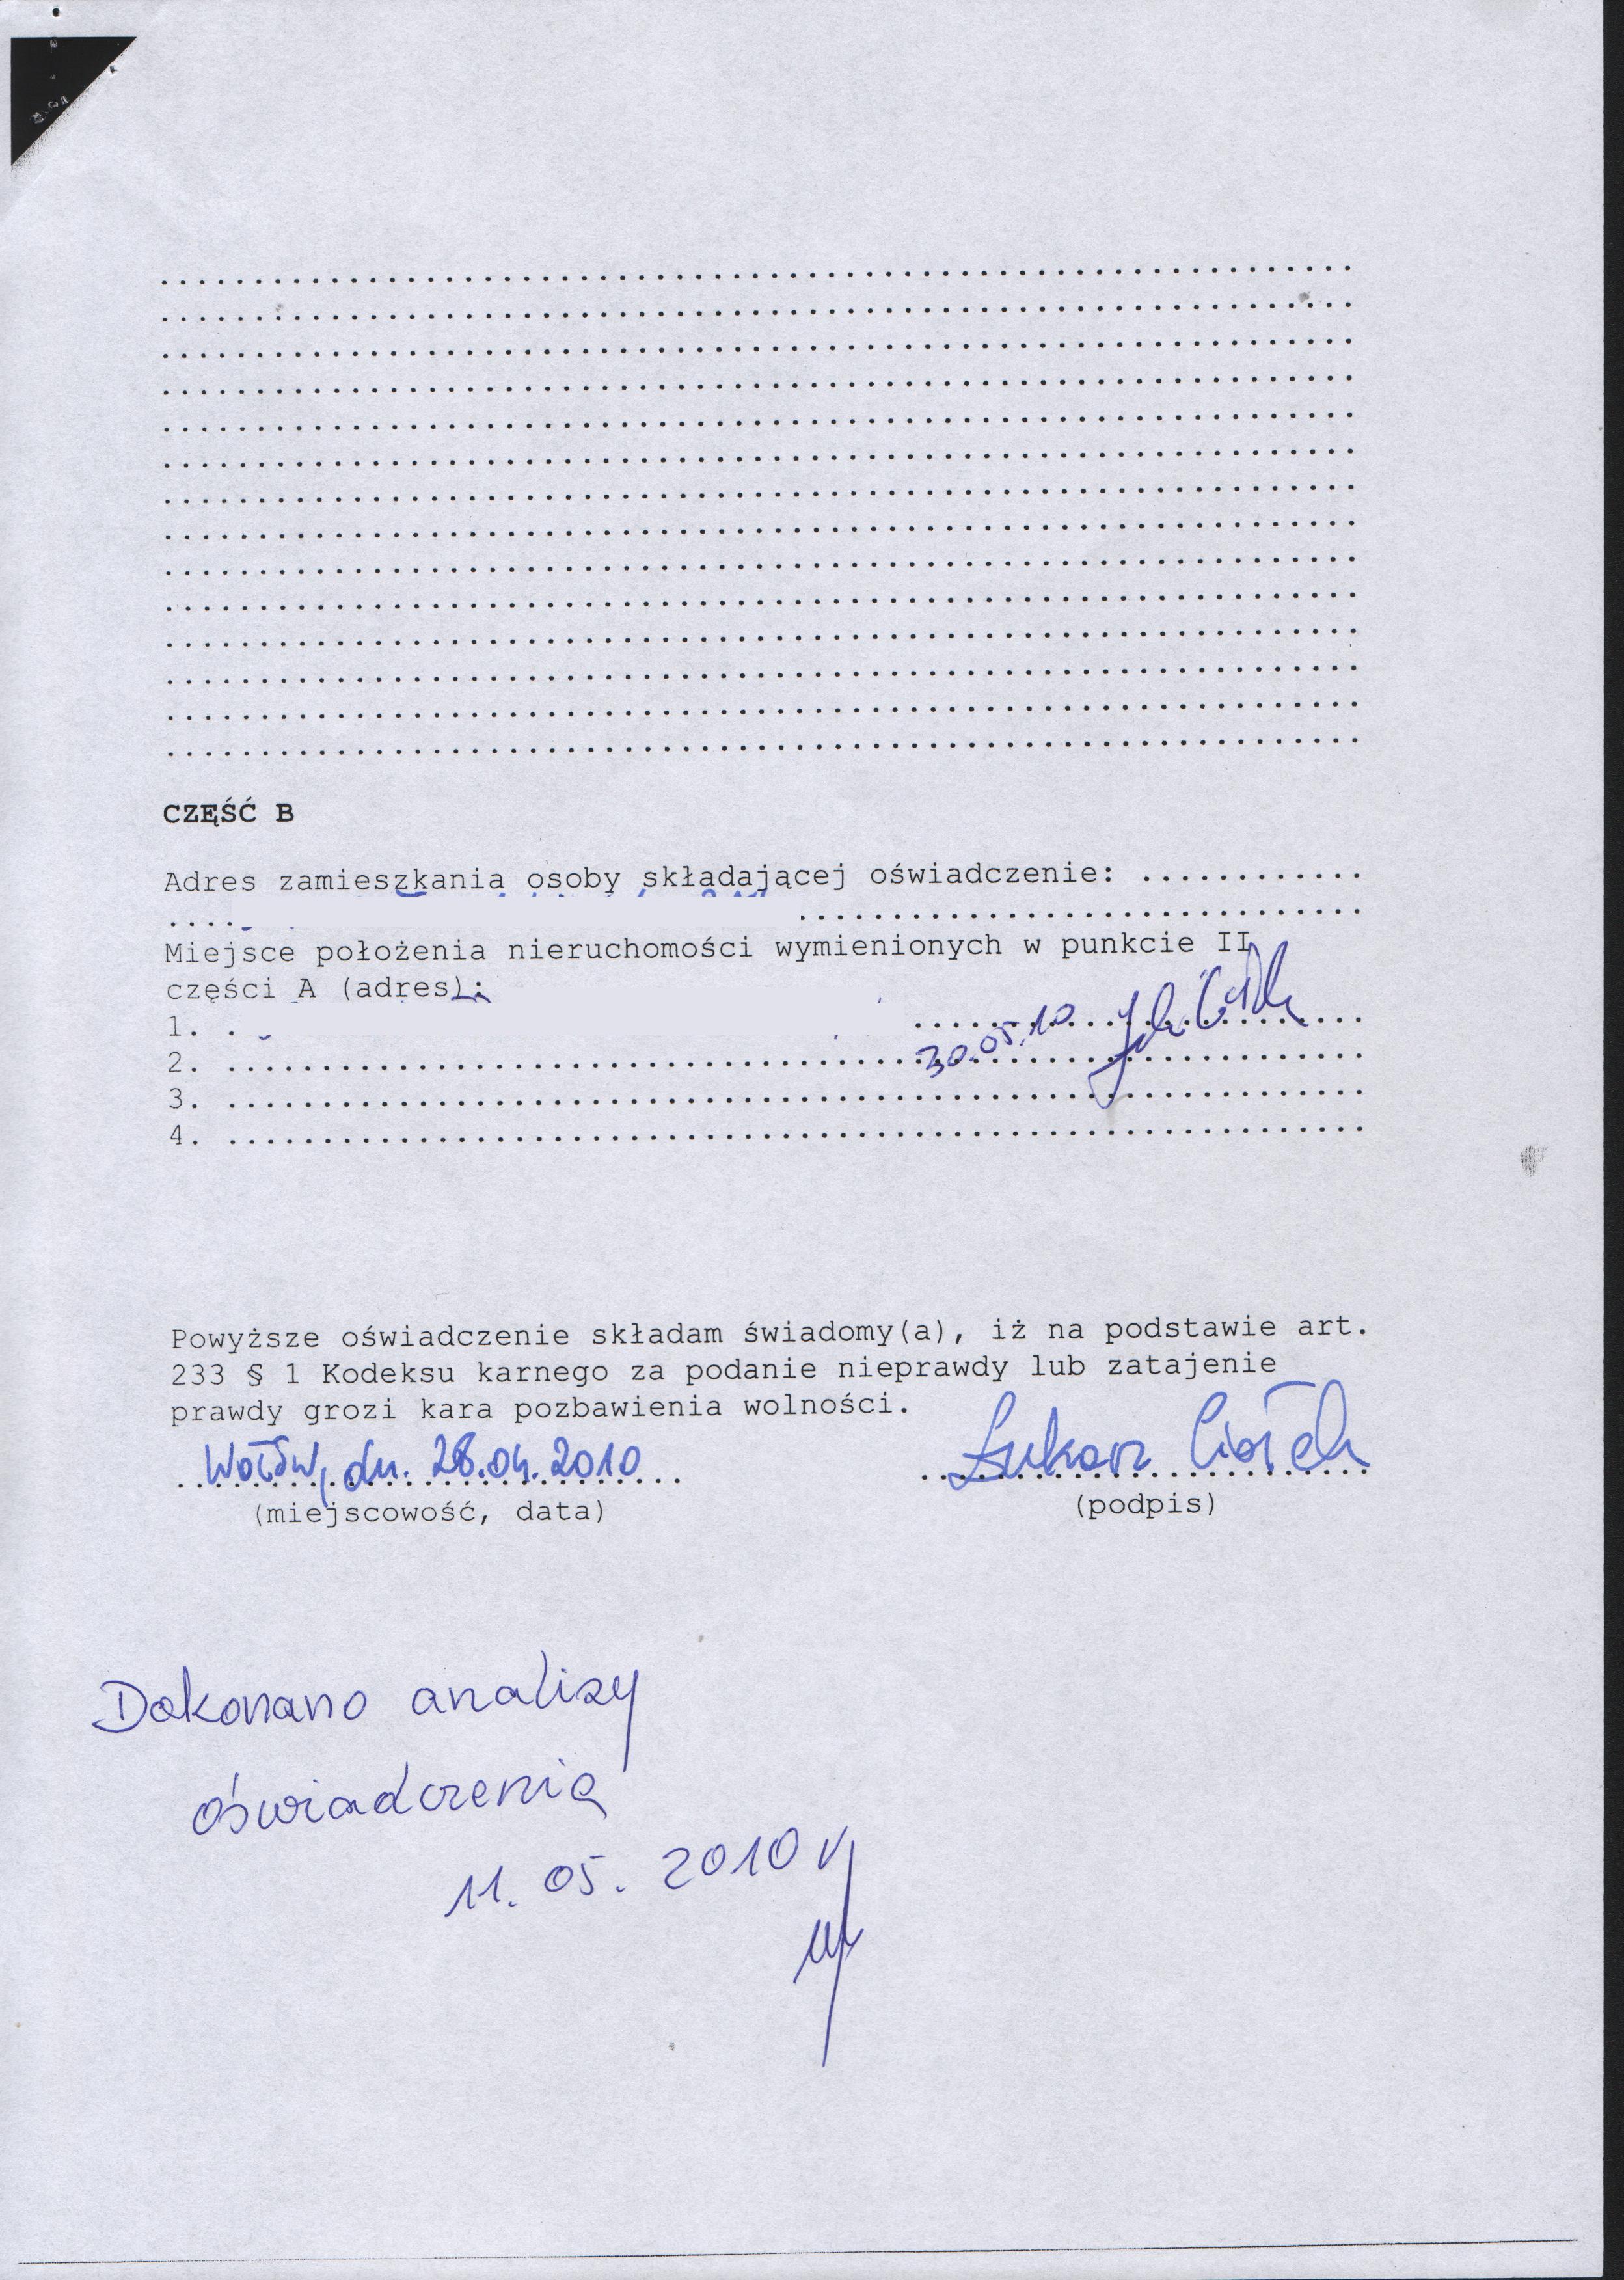 CZĘŚĆ B
Adres zamieszkania osoby składającej oświadczenie: ............
Miejsce położenia nieruchomości wymienionych w punkcie II
części A (adres):
1.
30.05.10
2.
3.
4.
Powyższe oświadczenie składam świadomy(a), iż na podstawie art.
233 § 1 Kodeksu karnego za podanie nieprawdy lub zatajenie
prawdy grozi kara pozbawienia wolności.
Wołów, dn. 28.04.2010 Łukasz Ciołek
(miejscowość, data) (podpis)
Dokonano analizy
oświadczenia
11. 05. 2010 r